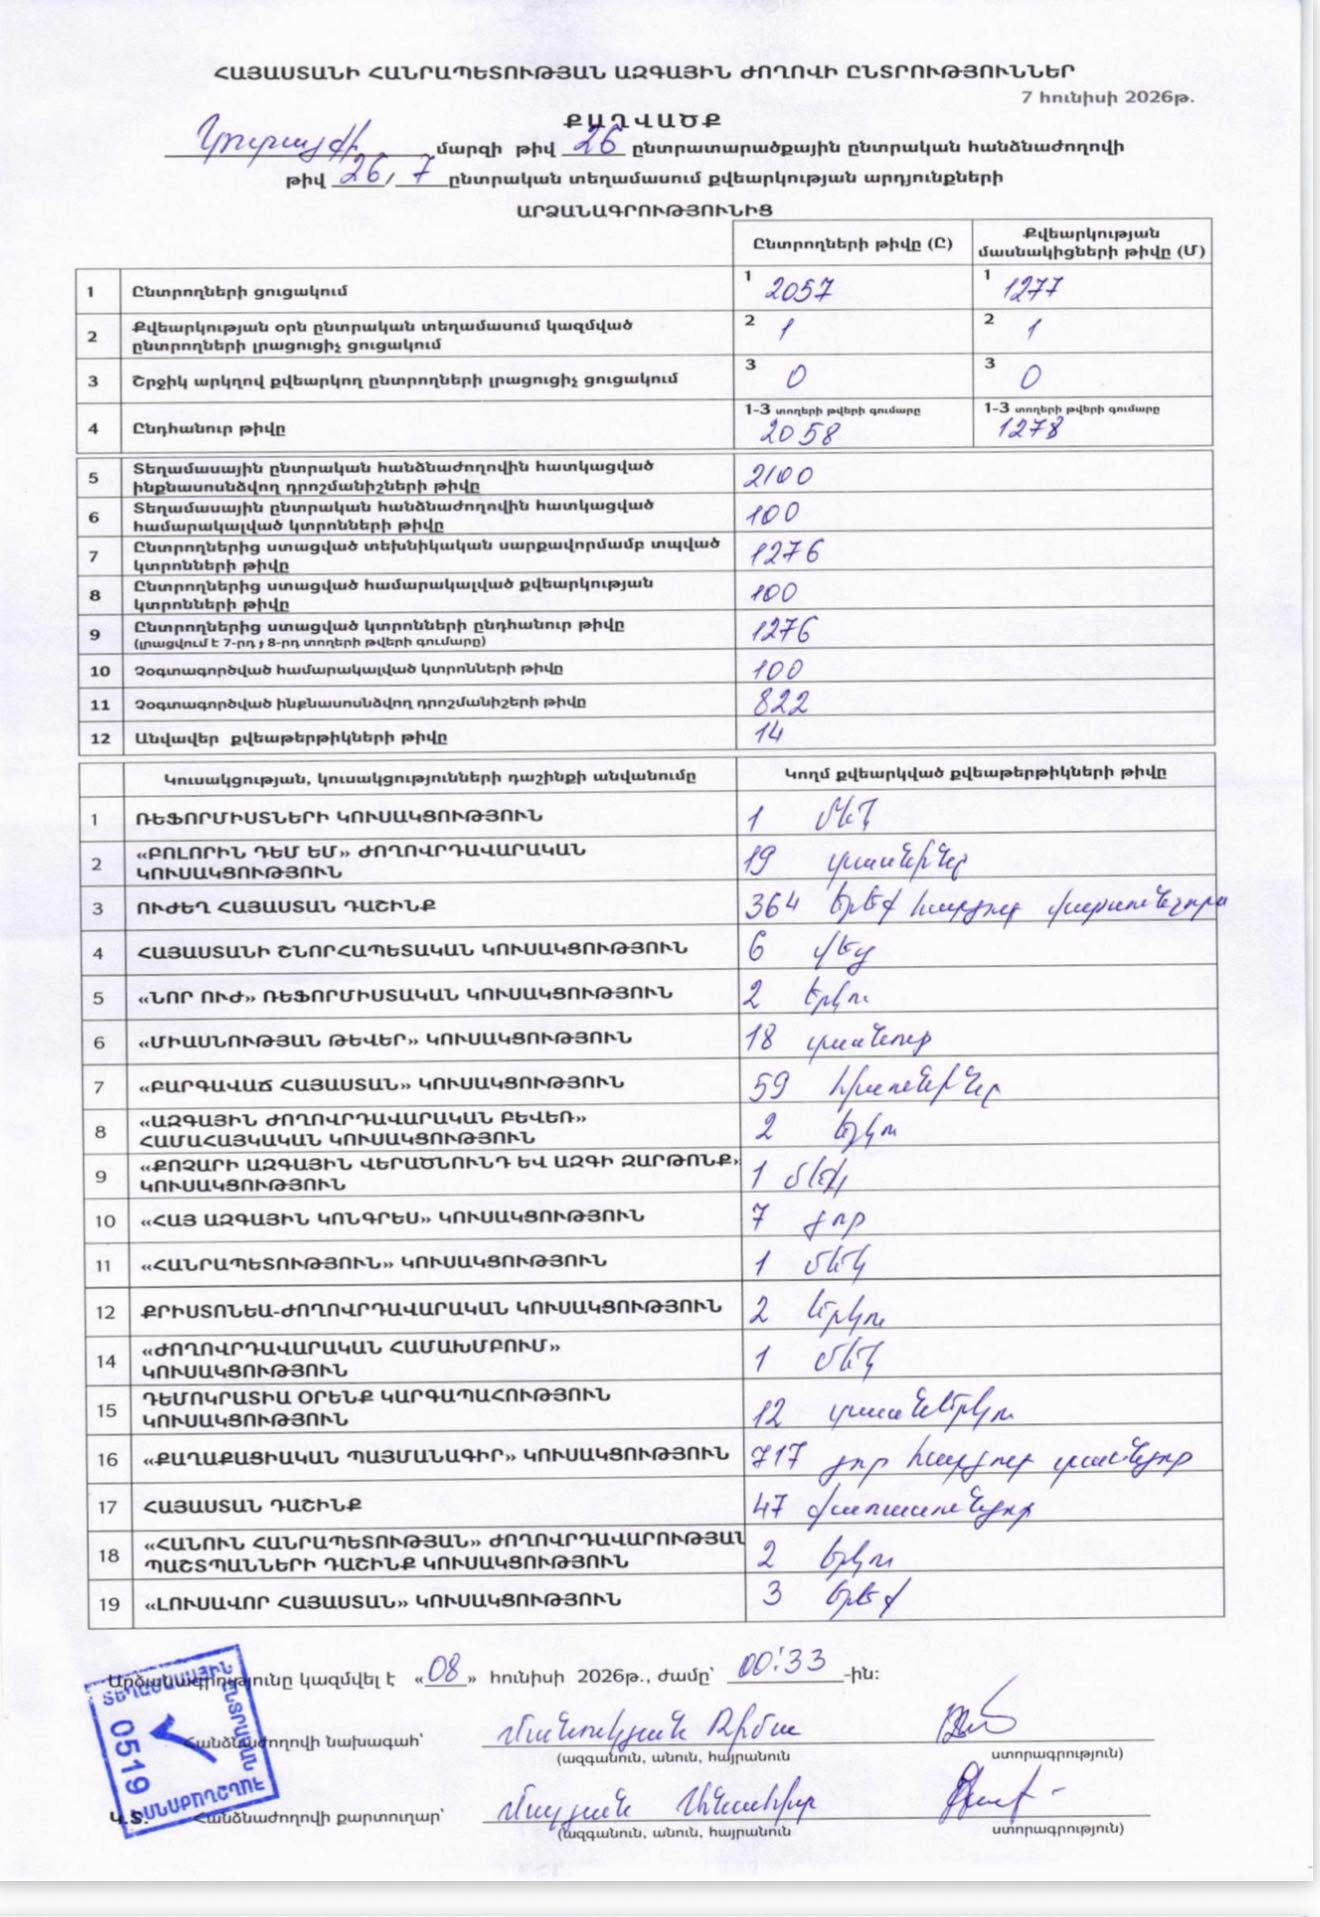 ՀԱՅԱՍՏԱՆԻ ՀԱՆՐԱՊԵՏՈՒԹՅԱՆ ԱԶԳԱՅԻՆ ԺՈՂՈՎԻ ԸՆՏՐՈՒԹՅՈՒՆՆԵՐ
7 հունիսի 2026թ.
ՔԱՂՎԱԾՔ
մարզի թիվ 26 ընտրատարածքային ընտրական հանձնաժողովի
թիվ 26/7 ընտրական տեղամասում քվեարկության արդյունքների
ԱՐՁԱՆԱԳՐՈՒԹՅՈՒՆԻՑ
Ընտրողների թիվը (Ը) Քվեարկության մասնակիցների թիվը (Մ)
1 Ընտրողների ցուցակում 1 2057 1 1277
2 Քվեարկության օրն ընտրական տեղամասում կազմված 2 1 2 1
ընտրողների լրացուցիչ ցուցակում
3 Շրջիկ արկղով քվեարկող ընտրողների լրացուցիչ ցուցակում 3 0 3 0
4 Ընդհանուր թիվը 1-3 տողերի թվերի գումարը 2058 1-3 տողերի թվերի գումարը 1278
5 Տեղամասային ընտրական հանձնաժողովին հատկացված
ինքնասոսնձվող դրոշմանիշների թիվը 2100
6 Տեղամասային ընտրական հանձնաժողովին հատկացված
համարակալված կտրոնների թիվը 100
7 Ընտրողներից ստացված տեխնիկական սարքավորմամբ տպված
կտրոնների թիվը 1276
8 Ընտրողներից ստացված համարակալված քվեարկության
կտրոնների թիվը 100
9 Ընտրողներից ստացված կտրոնների ընդհանուր թիվը 1276
(լրացվում է 7-րդ և 8-րդ տողերի թվերի գումարը)
10 Չօգտագործված համարակալված կտրոնների թիվը 100
11 Չօգտագործված ինքնասոսնձվող դրոշմանիշերի թիվը 822
12 Անվավեր քվեաթերթիկների թիվը 14
Կուսակցության, կուսակցությունների դաշինքի անվանումը Կողմ քվեարկված քվեաթերթիկների թիվը
1 ՌԵՖՈՐՄԻՍՏՆԵՐԻ ԿՈՒՍԱԿՑՈՒԹՅՈՒՆ 1 մեկ
2 «ԲՈԼՈՐԻՆ ԴԵՄ ԵՄ» ԺՈՂՈՎՐԴԱՎԱՐԱԿԱՆ
ԿՈՒՍԱԿՑՈՒԹՅՈՒՆ 19 տասնինը
3 ՈՒԺԵՂ ՀԱՅԱՍՏԱՆ ԴԱՇԻՆՔ 364 երեք հարյուր վաթսունչորս
4 ՀԱՅԱՍՏԱՆԻ ՇՆՈՐՀԱՊԵՏԱԿԱՆ ԿՈՒՍԱԿՑՈՒԹՅՈՒՆ 6 վեց
5 «ՆՈՐ ՈՒԺ» ՌԵՖՈՐՄԻՍՏԱԿԱՆ ԿՈՒՍԱԿՑՈՒԹՅՈՒՆ 2 երկու
6 «ՄԻԱՍՆՈՒԹՅԱՆ ԹԵՎԵՐ» ԿՈՒՍԱԿՑՈՒԹՅՈՒՆ 18 տասնութ
7 «ԲԱՐԳԱՎԱՃ ՀԱՅԱՍՏԱՆ» ԿՈՒՍԱԿՑՈՒԹՅՈՒՆ 59 հիսունինը
8 «ԱԶԳԱՅԻՆ ԺՈՂՈՎՐԴԱՎԱՐԱԿԱՆ ԲԵՎԵՌ»
ՀԱՄԱՀԱՅԿԱԿԱՆ ԿՈՒՍԱԿՑՈՒԹՅՈՒՆ 2 երկու
9 «ՔՈՉԱՐԻ ԱԶԳԱՅԻՆ ՎԵՐԱԾՆՈՒՆԴ ԵՎ ԱԶԳԻ ԶԱՐԹՈՆՔ»
ԿՈՒՍԱԿՑՈՒԹՅՈՒՆ 1 մեկ
10 «ՀԱՅ ԱԶԳԱՅԻՆ ԿՈՆԳՐԵՍ» ԿՈՒՍԱԿՑՈՒԹՅՈՒՆ 7 յոթ
11 «ՀԱՆՐԱՊԵՏՈՒԹՅՈՒՆ» ԿՈՒՍԱԿՑՈՒԹՅՈՒՆ 1 մեկ
12 ՔՐԻՍՏՈՆԵԱ-ԺՈՂՈՎՐԴԱՎԱՐԱԿԱՆ ԿՈՒՍԱԿՑՈՒԹՅՈՒՆ 2 երկու
14 «ԺՈՂՈՎՐԴԱՎԱՐԱԿԱՆ ՀԱՄԱԽՄԲՈՒՄ»
ԿՈՒՍԱԿՑՈՒԹՅՈՒՆ 1 մեկ
15 ԴԵՄՈԿՐԱՏԻԱ ՕՐԵՆՔ ԿԱՐԳԱՊԱՀՈՒԹՅՈՒՆ
ԿՈՒՍԱԿՑՈՒԹՅՈՒՆ 12 տասներկու
16 «ՔԱՂԱՔԱՑԻԱԿԱՆ ՊԱՅՄԱՆԱԳԻՐ» ԿՈՒՍԱԿՑՈՒԹՅՈՒՆ 717 յոթ հարյուր տասնյոթ
17 ՀԱՅԱՍՏԱՆ ԴԱՇԻՆՔ 47 քառասունյոթ
18 «ՀԱՆՈՒՆ ՀԱՆՐԱՊԵՏՈՒԹՅԱՆ» ԺՈՂՈՎՐԴԱՎԱՐՈՒԹՅԱՆ
ՊԱՇՏՊԱՆՆԵՐԻ ԴԱՇԻՆՔ ԿՈՒՍԱԿՑՈՒԹՅՈՒՆ 2 երկու
19 «ԼՈՒՍԱՎՈՐ ՀԱՅԱՍՏԱՆ» ԿՈՒՍԱԿՑՈՒԹՅՈՒՆ 3 երեք
Արձանագրությունը կազմվել է «08» հունիսի 2026թ., ժամը՝ 00:33-ին:
ՏԵՂԱՄԱՍԱՅԻՆ ԸՆՏՐԱԿԱՆ ՀԱՆՁՆԱԺՈՂՈՎ 0519
Հանձնաժողովի նախագահ՝ Մանուկյան Ռիմա
(ազգանուն, անուն, հայրանուն ստորագրություն)
Կ.Տ. Հանձնաժողովի քարտուղար՝
(ազգանուն, անուն, հայրանուն ստորագրություն)